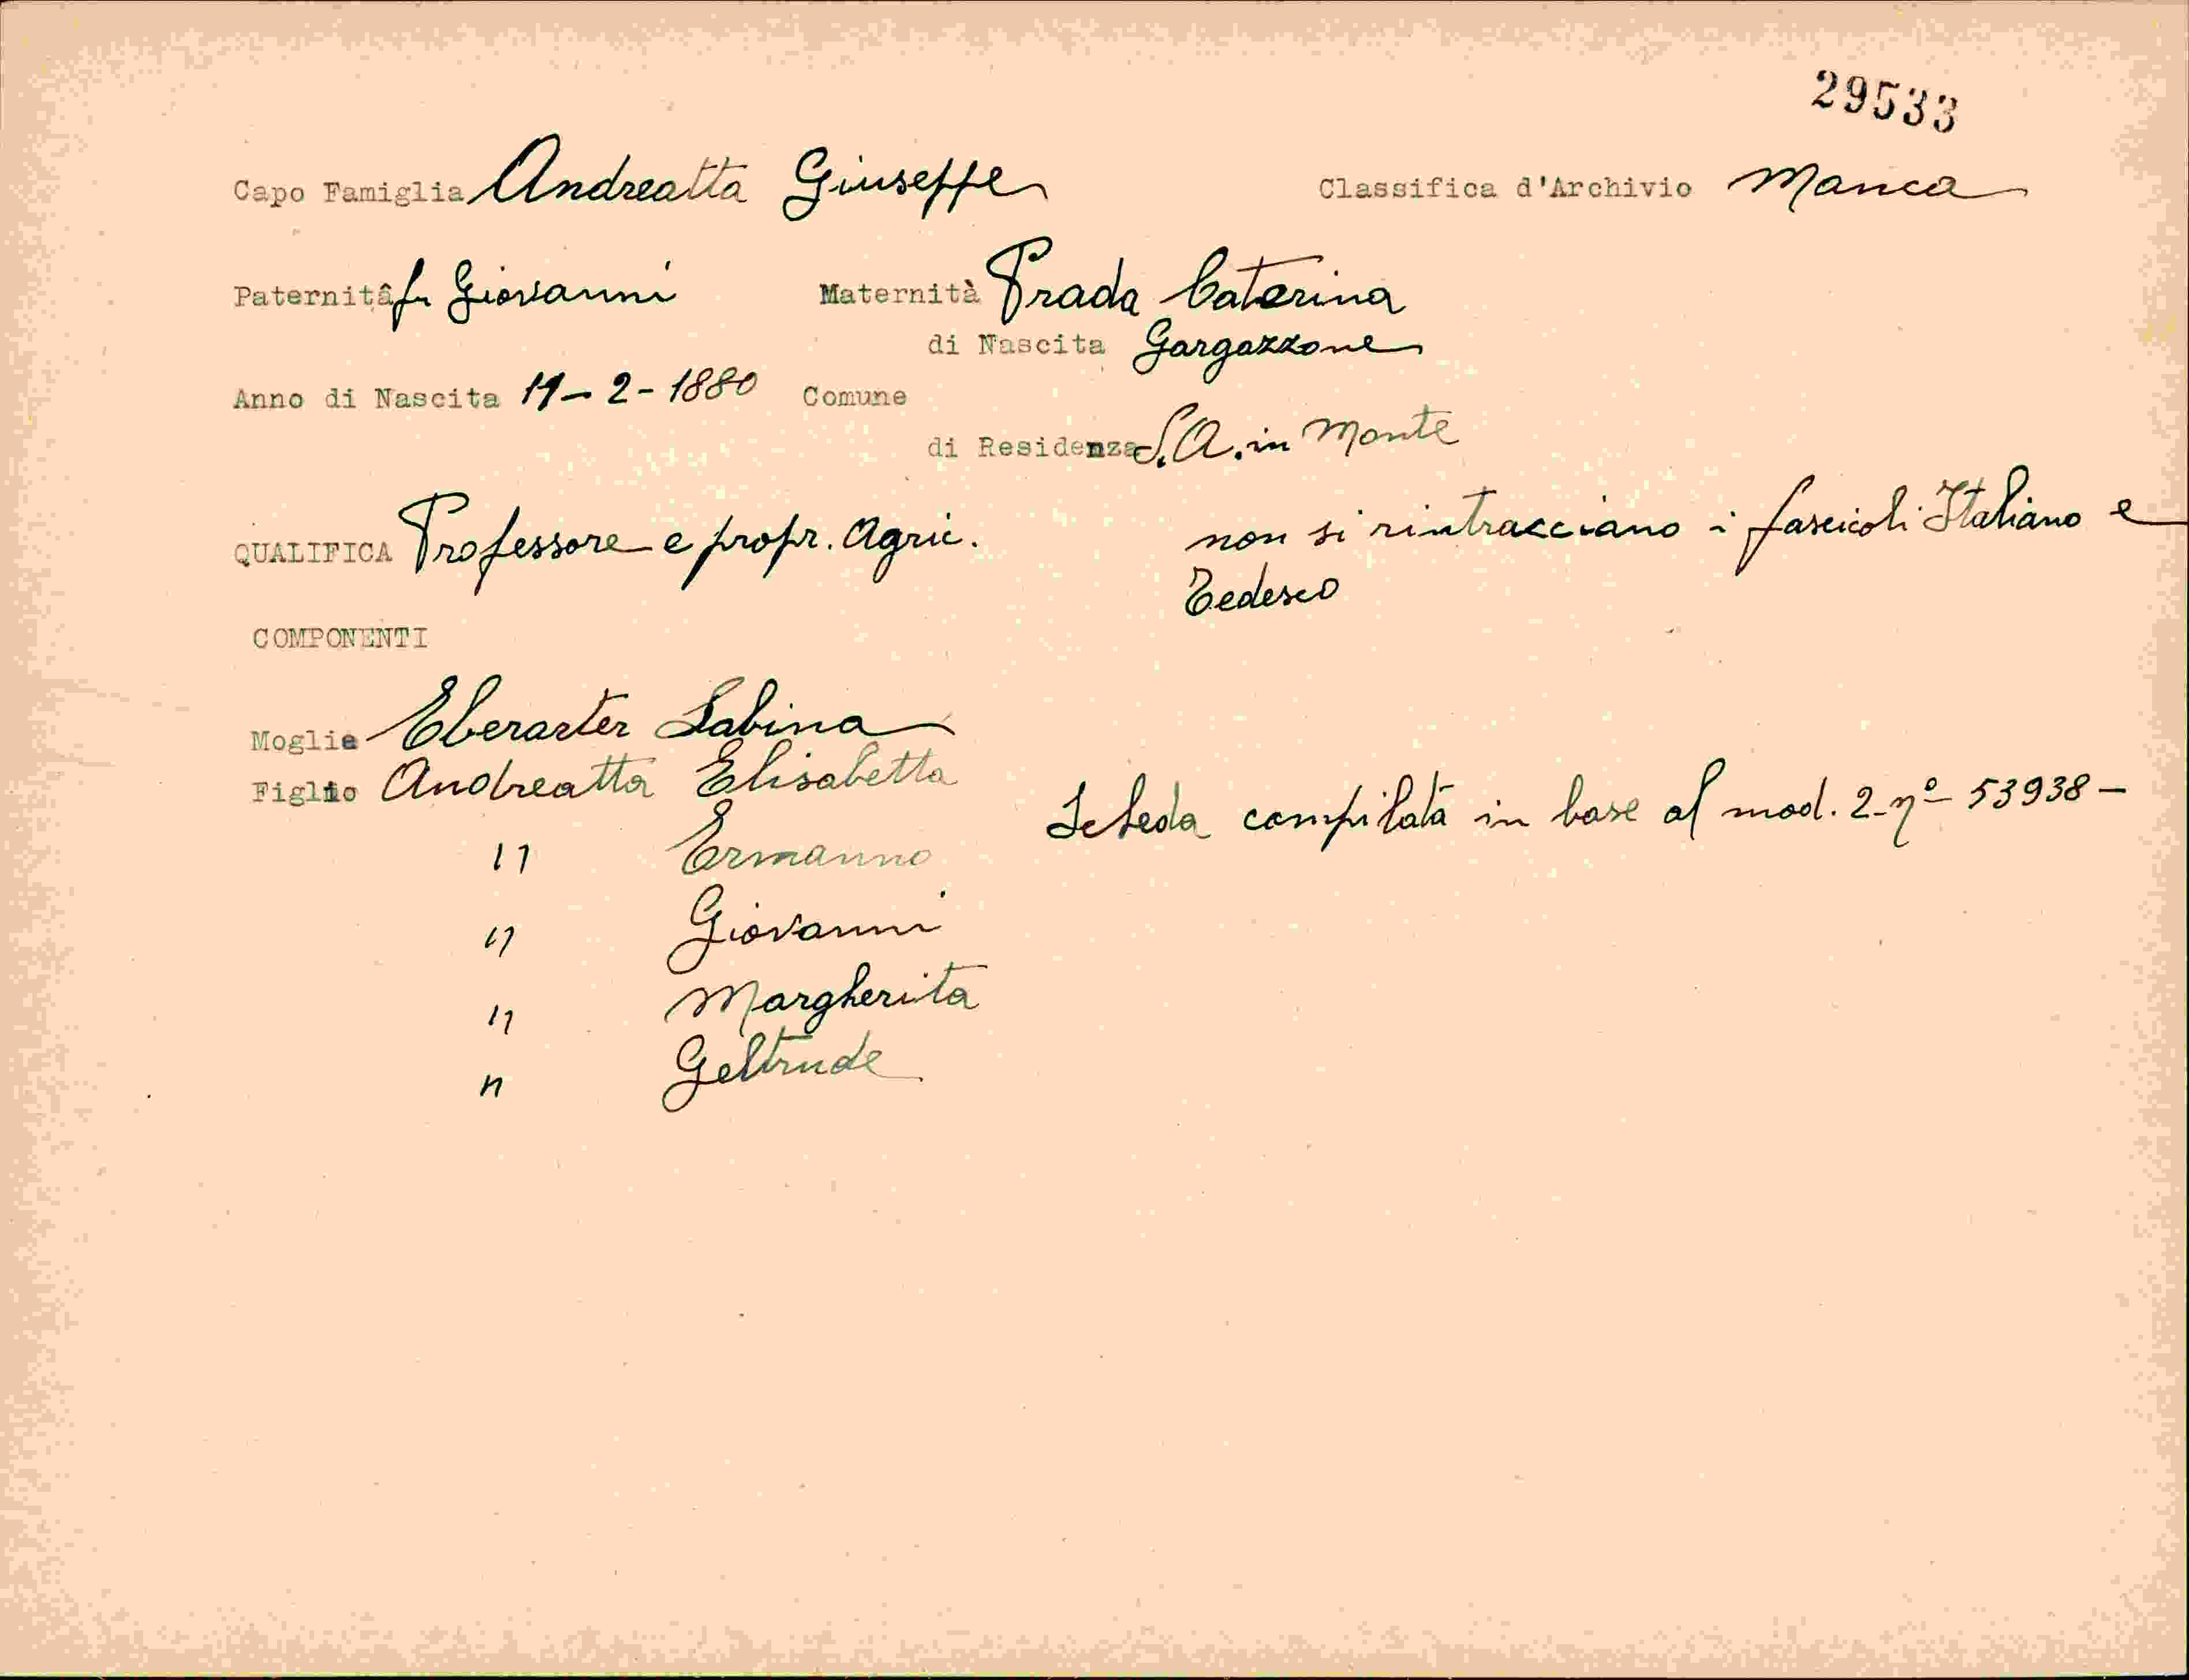 29533
Capo Famiglia Andreatta Giuseppe Classifica d'Archivio Manca
Paternità fu Giovanni Maternità Prada Caterina
di Nascita Gargazzone
Anno di Nascita 2-1880 Comune
di Residenza S. A. in Monte
QUALIFICA Professore e propr. Agric. non si rintracciano i fascicoli Italiano e
Tedesco
COMPONENTI
Moglie Sabina
Figlio Andreatta Elisabetta
" Ermanno
Scheda compilata in base al mod. 2-nº 53938-
" Giovanni
" Margherita
" Geltrude